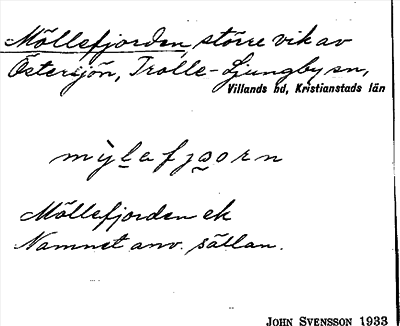 Möllefjorden, större vik av
Östersjön, Trolle-Ljungby sn,
Villands hd, Kristianstads län
mỳlafjɔorn
Möllefjorden ek
Namnet anv. sällan.
JOHN SVENSSON 1933